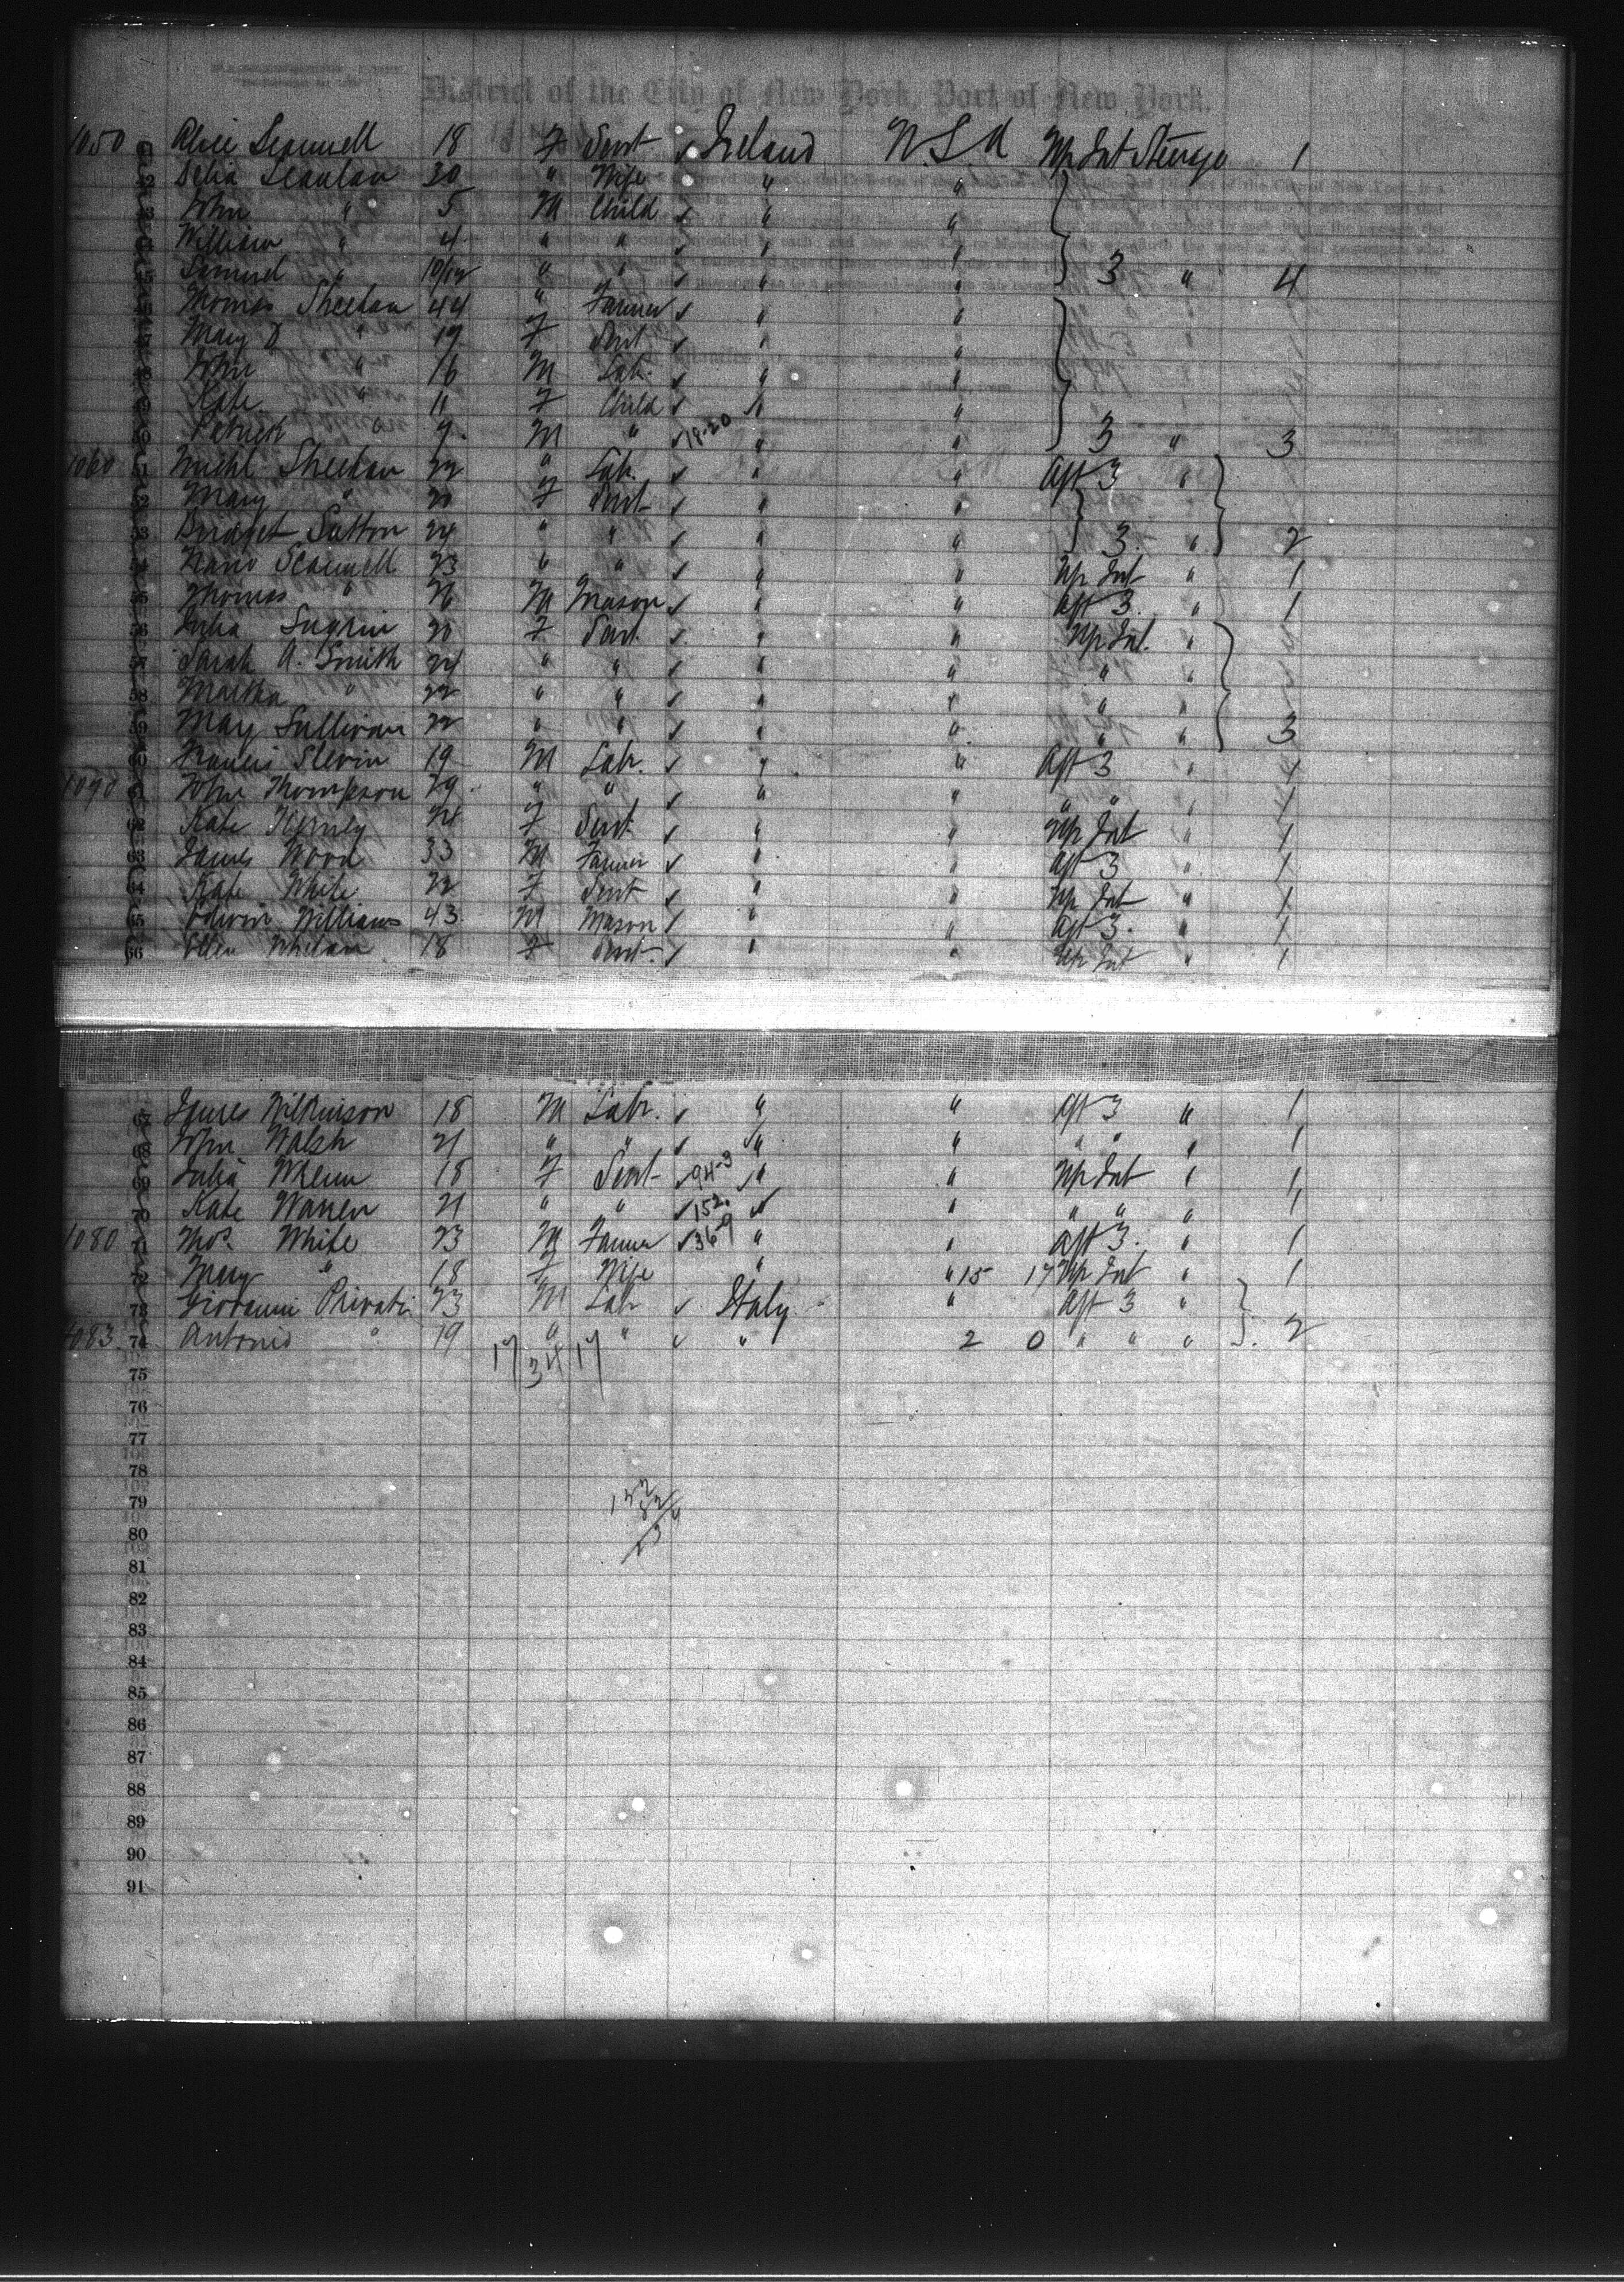 District of the City of New York, Port of New York.
1050 41 Alice Scannell 18 F Servt ✓ Ireland U.S.A Up Int Steerage 1
42 Delia Scanlan 30 " Wife " "
43 John " 5 M Child ✓ " "
44 William " 4 " " ✓ " "
45 Samuel " 10/12 " " ✓ " " 3 " 4
46 Thomas Sheehan 44 " Farmer ✓ " "
47 Mary D " 19 F Servt ✓ " "
48 John " 16 M Lab. ✓ " "
49 Kate " 11 F Child ✓ " "
50 Patrick " 9 M " ✓ 18-20 " " 3 " 3
1060 51 Michl Sheehan 22 " Lab. ✓ " " Aft 3 "
52 Mary " 20 F Servt ✓ " "
53 Bridget Sutton 24 " " ✓ " " 3. " 2
54 Scannell 23 " " ✓ " " Up Int " 1
55 Thomas " 26 M Mason ✓ " " Aft 3. " 1
56 Julia 20 F Servt ✓ " " Up Int. "
57 Sarah A. Smith 24 " " ✓ " " " "
58 Martha " 22 " " ✓ " " " "
59 May Sullivan 22 " " ✓ " " " " 3
60 Francis Slevin 19 M Lab. ✓ " " Aft 3 " 1
1070 61 John Thompson 29 " " ✓ " " " " " 1
62 Kate 24 F Servt ✓ " " Up Int " 1
63 James Wood 33 M Farmer ✓ " " Aft 3 " 1
64 Kate White 22 F Servt ✓ " " Up Int " 1
65 Edwin Williams 43 M Mason ✓ " " Aft 3. " 1
66 Ellen Whelan 18 F Servt ✓ " " Up Int " 1
67 James Wilkinson 18 M Labr. ✓ " " Aft 3 " 1
68 Walsh 21 " " ✓ " " " " " 1
69 Julia 18 F Servt ✓ 94-3 ✓ " " Up Int " 1
70 Kate Warren 21 " " ✓ 152. ✓ " " " " 1
1080 71 Thos. White 23 M Farmer ✓ 36-9 " " Aft 3. " 1
72 Mary " 18 F Wife " " 15 17 Up Int " 1
73 Giovanni Privati 23 M Lab ✓ Italy " Aft 3 "
1083 74 Antonio " 19 " " ✓ " 2 0 " " " 2
17 34 17
75
76
77
78
79
80
81
82
83
84
85
86
87
88
89
90
91